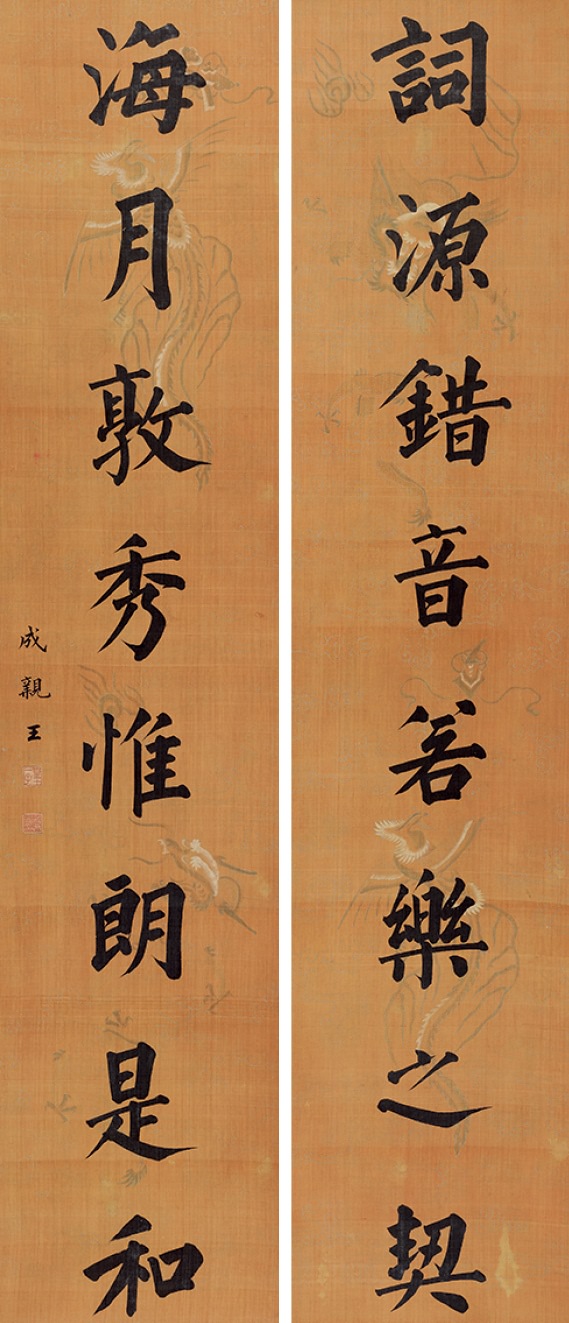 詞源錯音若樂之契
海月敦秀惟朗是和
成親王